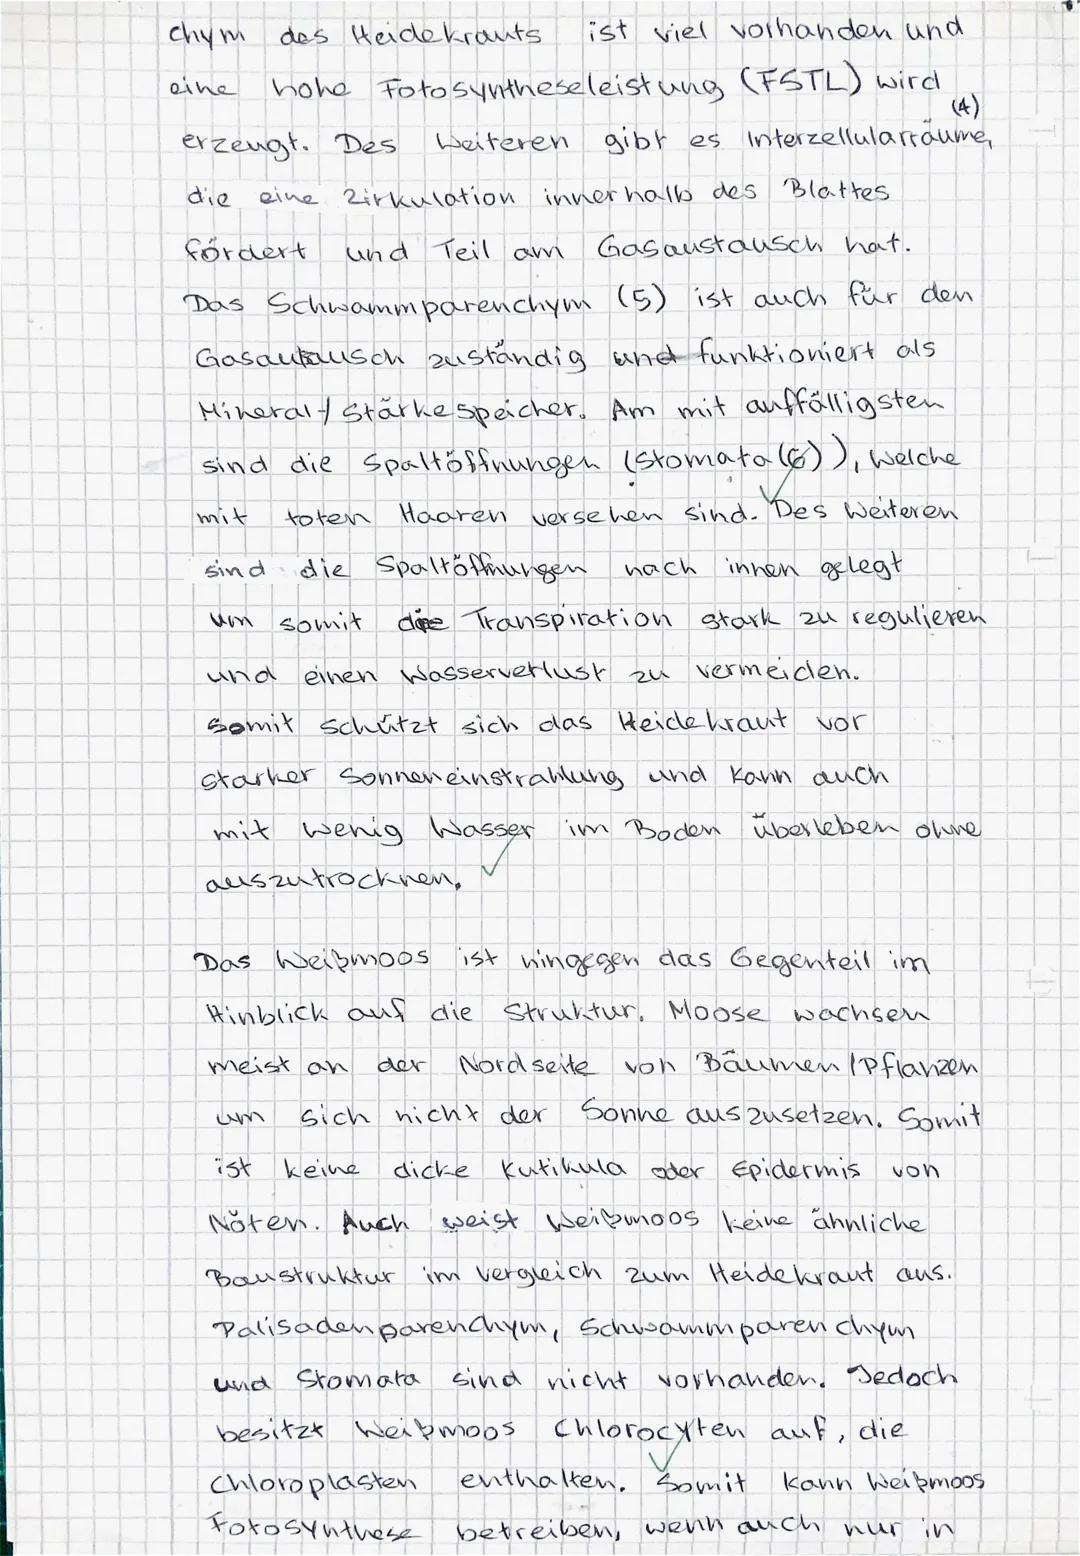 chym des Heidekrauts ist viel vorhanden und
eine hohe Fotosyntheseleistung (FSTL) wird
erzeugt. Des Weiteren gibt es Interzellularräume, (4)
die eine Zirkulation innerhalb des Blattes
fördert und Teil am Gasaustausch hat.
Das Schwammparenchym (5) ist auch für den
Gasautausch zuständig und funktioniert als
Mineral-/Stärkespeicher. Am mit auffälligsten
sind die Spaltöffnungen (Stomata(6)), welche
mit toten Haaren versehen sind. Des Weiteren
sind die Spaltöffnungen nach innen gelegt
um somit die Transpiration stark zu regulieren
und einen Wasserverlust zu vermeiden.
Somit schützt sich das Heidekraut vor
starker Sonneneinstrahlung und kann auch
mit wenig Wasser im Boden überleben ohne
auszutrocknen.
Das Weißmoos ist hingegen das Gegenteil im
Hinblick auf die Struktur. Moose wachsen
meist an der Nordseite von Bäumen/Pflanzen
um sich nicht der Sonne auszusetzen. Somit
ist keine dicke Kutikula oder Epidermis von
Nöten. Auch weist Weißmoos keine ähnliche
Baustruktur im vergleich zum Heidekraut aus.
Palisadenparenchym, Schwammparenchym
und Stomata sind nicht vorhanden. Jedoch
besitzt Weißmoos Chlorocyten auf, die
Chloroplasten enthalten. Somit kann Weißmoos
Fotosynthese betreiben, wenn auch nur in